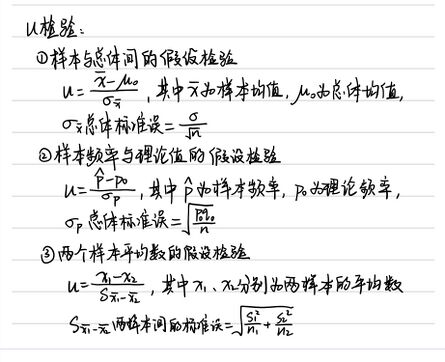 u检验:
①样本与总体间的假设检验
u = (x̄ - μ₀)/σx̄, 其中x̄为样本均值, μ₀为总体均值,
σx̄总体标准误 = σ/√n
②样本频率与理论值的假设检验
u = (p̂ - p₀)/σp, 其中p̂为样本频率, p₀为理论频率,
σp总体标准误 = √(p₀q₀/n)
③两个样本平均数的假设检验
u = (x₁ - x₂)/Sx̄₁-x̄₂, 其中x₁、x₂分别为两样本的平均数
Sx̄₁-x̄₂两样本间的标准误 = √(S₁²/n₁ + S₂²/n₂)